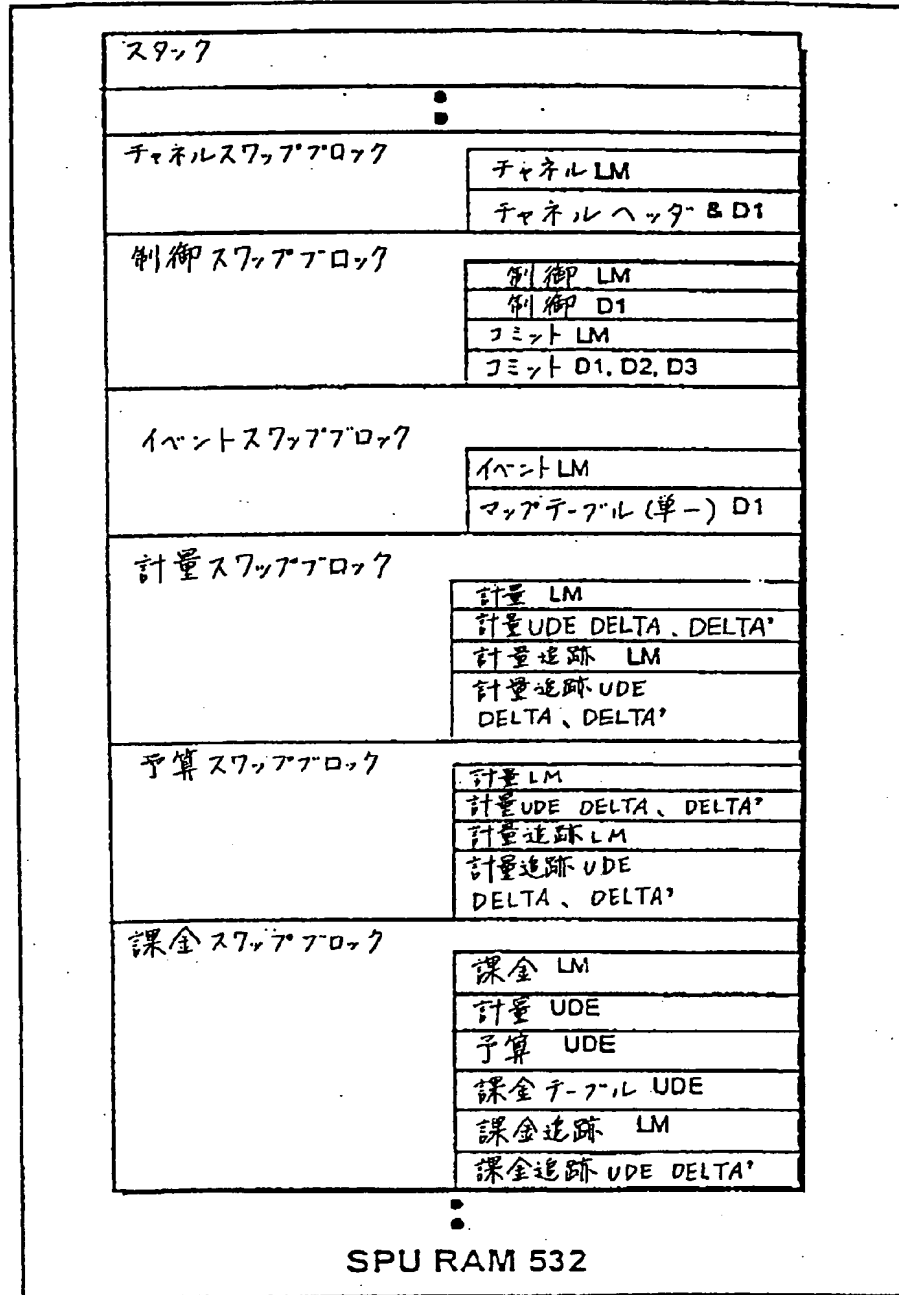 スタック
チャネルスワップブロック
チャネル LM
チャネルヘッダ & D1
制御スワップブロック
制御 LM
制御 D1
コミット LM
コミット D1, D2, D3
イベントスワップブロック
イベント LM
マップテーブル (単一) D1
計量スワップブロック
計量 LM
計量UDE DELTA、DELTA'
計量追跡 LM
計量追跡UDE
DELTA、DELTA'
予算スワップブロック
計量LM
計量UDE DELTA、DELTA'
計量追跡LM
計量追跡UDE
DELTA、DELTA'
課金スワップブロック
課金 LM
計量 UDE
予算 UDE
課金テーブル UDE
課金追跡 LM
課金追跡 UDE DELTA'
SPU RAM 532